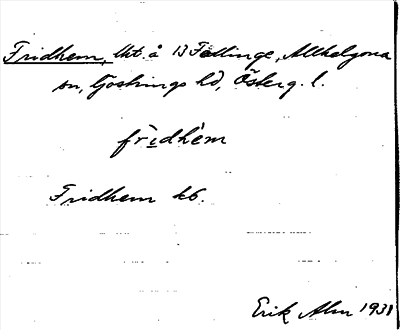 Fridhem, lht å 13 Fållinge, Allhelgona
sn, Göstrings hd, Österg. l.
fri̱dhèm
Fridhem kb.
Erik Alm 1931